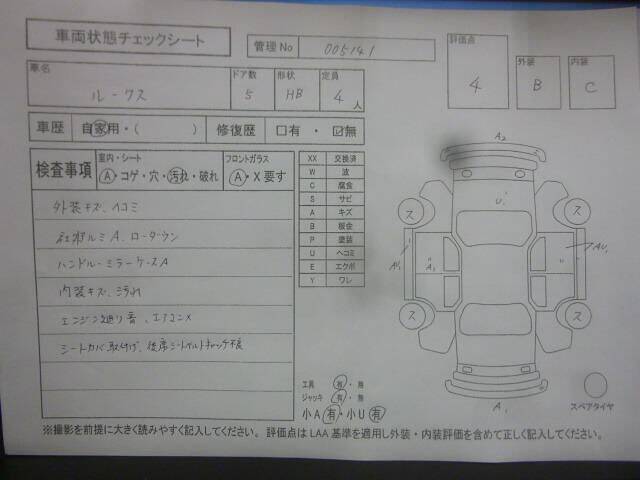 車両状態チェックシート
管理No 005141
評価点 4
外装 B
内装 C
車名 ルークス
ドア数 5
形状 HB
定員 4人
車歴 自家用・( )
修復歴 □有・☑無
検査事項
室内・シート A・コゲ・穴・汚れ・破れ
フロントガラス A・X要す
外装キズ、ヘコミ
社外アルミA、ローダウン
ハンドル・ミラーケースA
内装キズ、汚れ
エンジン廻り音、エアコン×
シートカバー取付け、後席シートベルトキャッチ不良
XX 交換済
W 波
C 腐食
S サビ
A キズ
B 板金
P 塗装
U ヘコミ
E エクボ
Y ワレ
A2
U1
ス
ス
A1
A1
AU1
ス
ス
A1
スペアタイヤ
工具 有・無
ジャッキ 有・無
小A有・小U有
※撮影を前提に大きく読みやすく記入してください。 評価点はLAA基準を適用し外装・内装評価を含めて正しく記入してください。